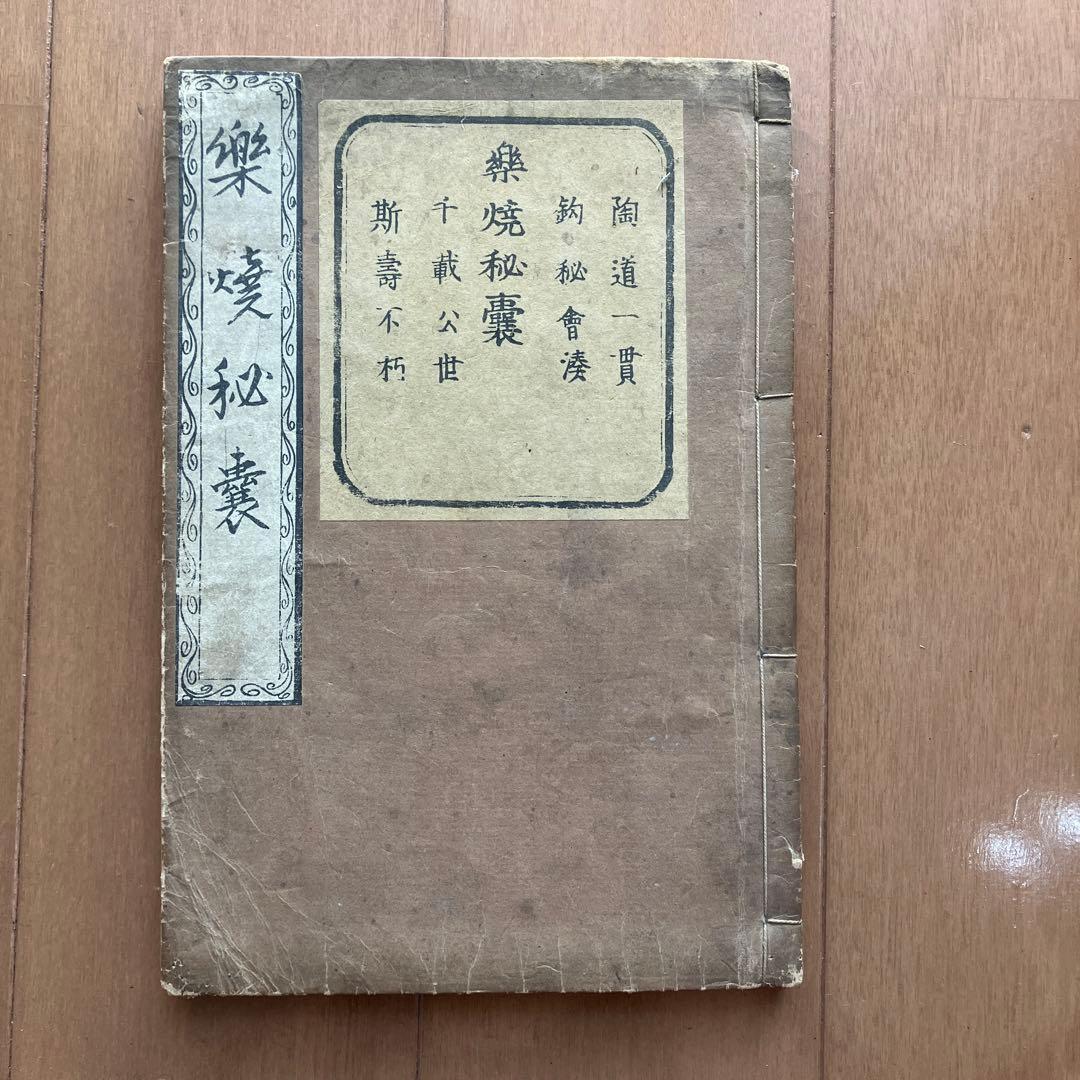 陶道一貫
鈎秘會湊
樂燒秘囊
千載公世
斯壽不朽
樂燒秘囊